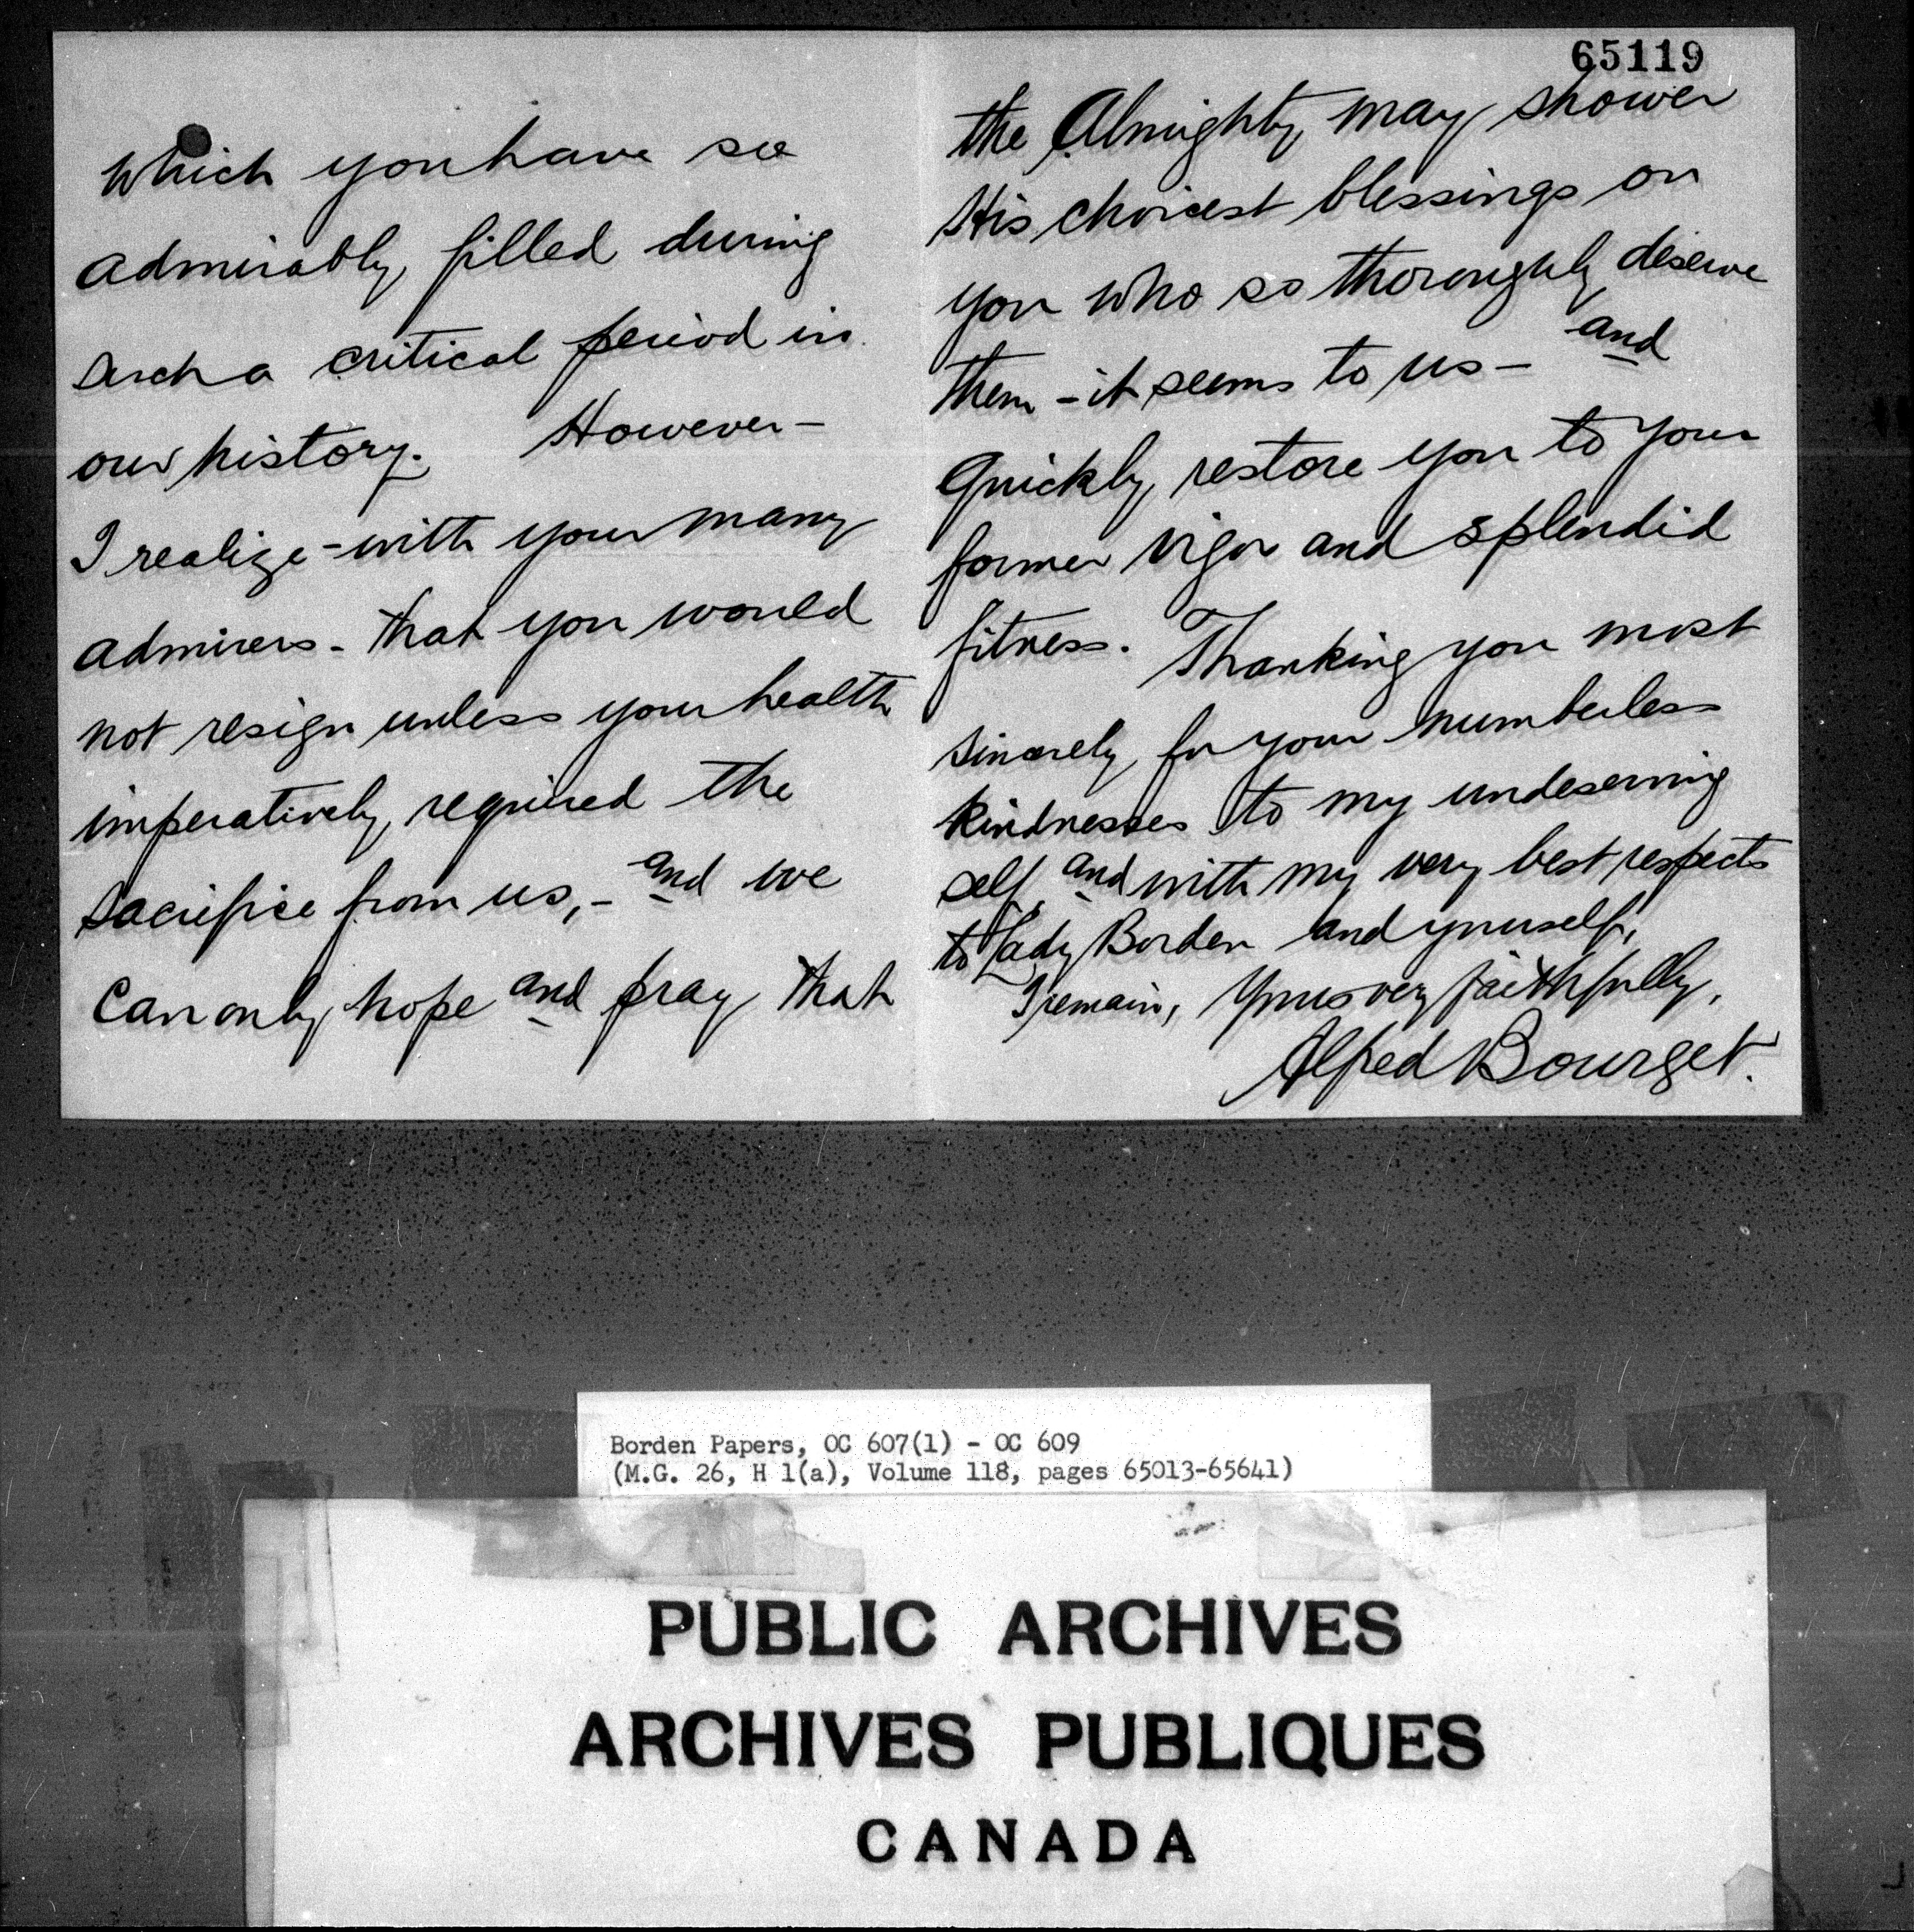 which you have so
admirably filled during
such a critical period in
our history. However-
I realize - with your many
admirers - that you would
not resign unless your health
imperatively required the
sacrifice from us, - and we
can only hope and pray that
65119
the Almighty may shower
His choicest blessings on
you who so thoroughly deserve
them - it seems to us - and
quickly restore you to your
former vigor and splendid
fitness. Thanking you most
sincerely for your numberless
kindnesses to my undeserving
self, and with my very best respects
to Lady Borden and yourself,
I remain, Yours very faithfully,
Alfred Bourget.
Borden Papers, OC 607(1) - OC 609
(M.G. 26, H 1(a), Volume 118, pages 65013-65641)
PUBLIC ARCHIVES
ARCHIVES PUBLIQUES
CANADA